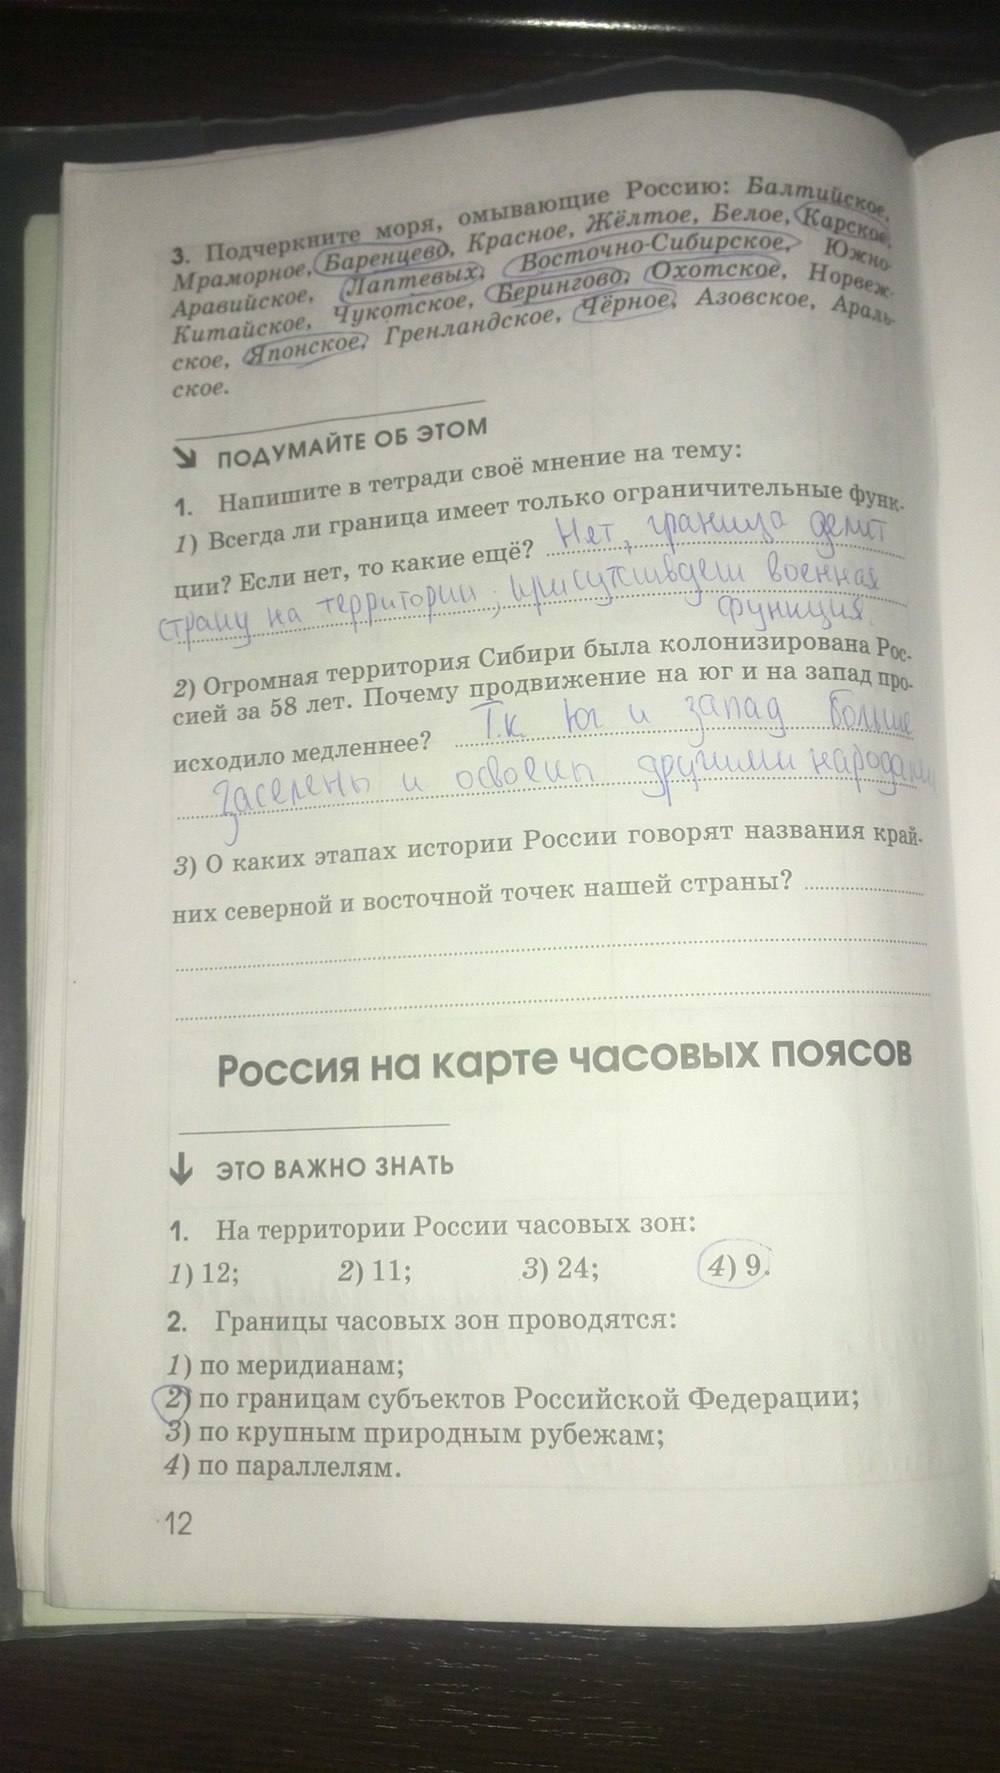 3. Подчеркните моря, омывающие Россию: Балтийское,
Мраморное, Баренцево, Красное, Жёлтое, Белое, Карское,
Аравийское, Лаптевых, Восточно-Сибирское, Южно-
Китайское, Чукотское, Берингово, Охотское, Норвеж-
ское, Японское, Гренландское, Чёрное, Азовское, Араль-
ское.
ПОДУМАЙТЕ ОБ ЭТОМ
1. Напишите в тетради своё мнение на тему:
1) Всегда ли граница имеет только ограничительные функ-
ции? Если нет, то какие ещё? Нет, граница делит
страну на территории, присутствует военная
функция.
2) Огромная территория Сибири была колонизирована Рос-
сией за 58 лет. Почему продвижение на юг и на запад про-
исходило медленнее? Т.к. юг и запад больше
заселены и освоены другими народами
3) О каких этапах истории России говорят названия край-
них северной и восточной точек нашей страны?
Россия на карте часовых поясов
ЭТО ВАЖНО ЗНАТЬ
1. На территории России часовых зон:
1) 12; 2) 11; 3) 24; 4) 9.
2. Границы часовых зон проводятся:
1) по меридианам;
2) по границам субъектов Российской Федерации;
3) по крупным природным рубежам;
4) по параллелям.
12